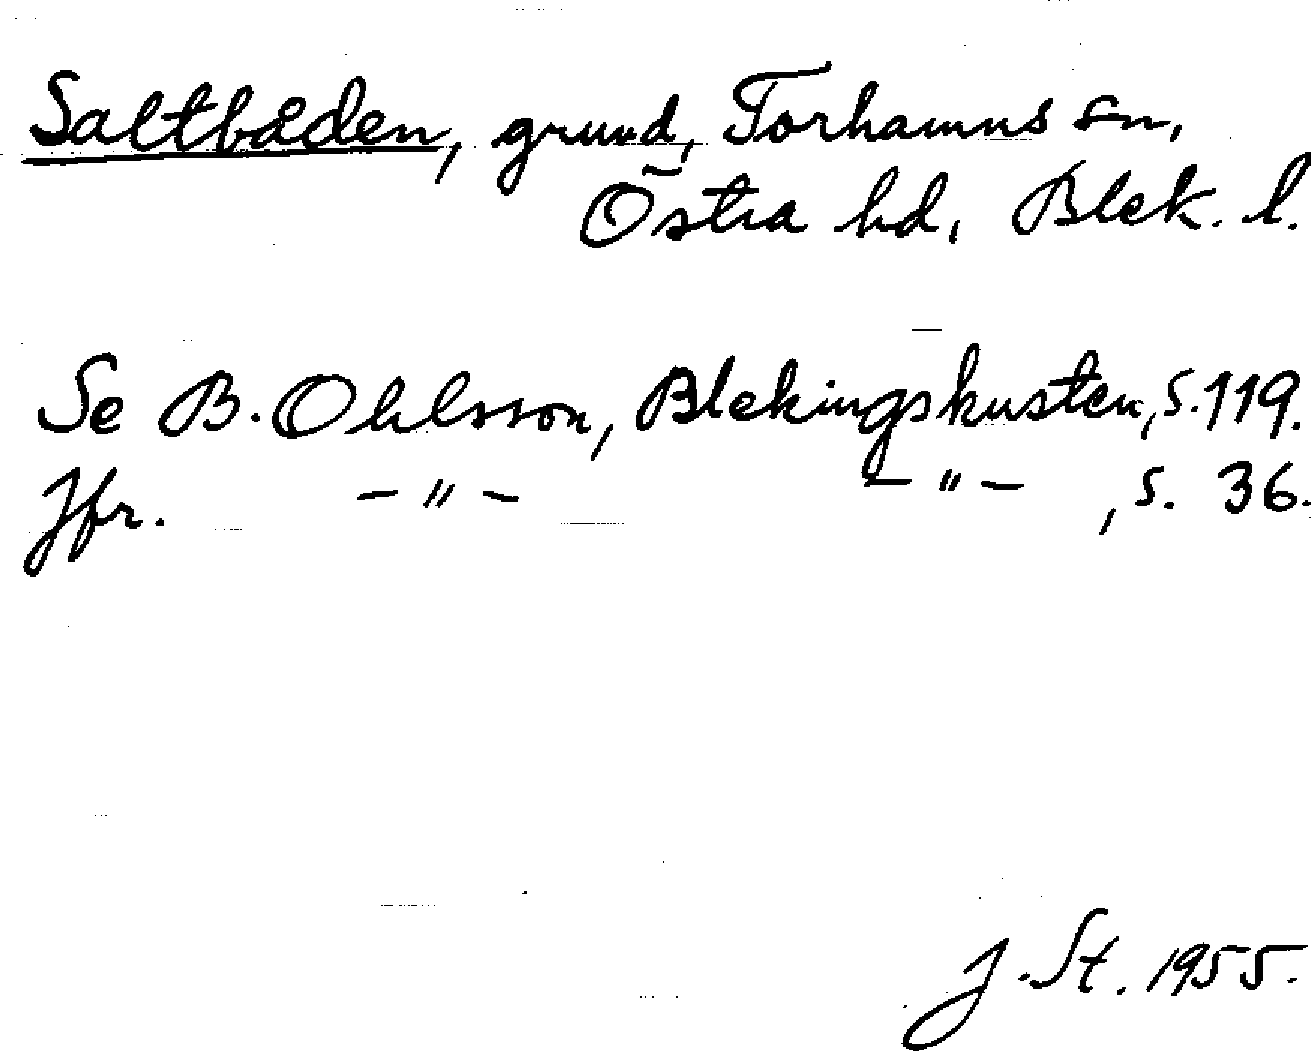 Saltbåden, grund, Torhamns sn,
Östra hd, Blek. l.
Se B. Ohlsson, Blekingskusten, s. 119.
Jfr. — " — — " — , s. 36.
J. St. 1955.